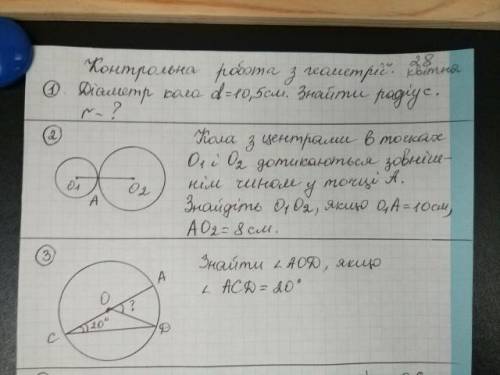 Контрольна робота з геометрії. 28 квітня
① Діаметр кола d=10,5см. Знайти радіус.
r - ?
② Кола з центрами в точках
O1 і O2 дотикаються зовніш-
нім чином у точці А.
Знайдіть O1O2, якщо O1A=10см,
AO2=8см.
O1
A
O2
③ Знайти ∠AOD, якщо
∠ ACD=20°
A
O
?
20°
C
D